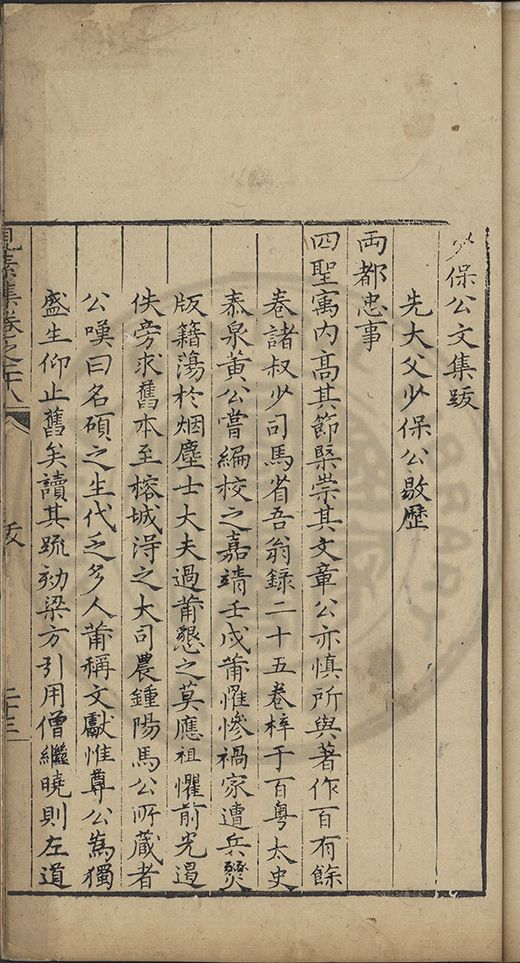 少保公文集跋
先大父少保公敭歷
両都忠事
四聖寓内髙其節槩崇其文章公亦慎所與著作百有餘
卷諸叔少司馬省吾翁録二十五卷梓于百粤太史
泰泉黄公嘗編校之嘉靖壬戌莆罹慘禍家遭兵燹
版籍蕩於烟塵士大夫過莆懇之莫應祖懼前光遏
佚旁求舊本至榕城淂之大司農鍾陽馬公所蔵者
公嘆曰名碩之生代乏多人莆稱文獻惟尊公爲獨
盛生仰止舊矣讀其疏劾梁方引用僧繼曉則左道
見素集卷之二十八
跋
二十三